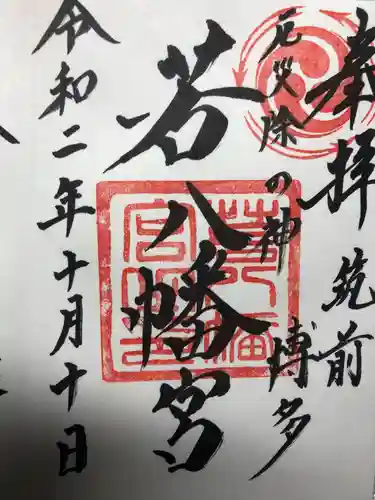 奉拝
筑前
博多
厄災除の神
若八幡宮
令和二年十月十日